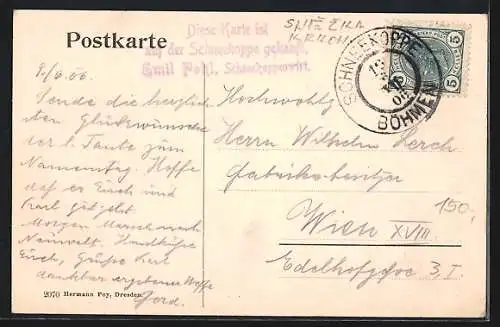 Postkarte
Diese Karte ist
auf der Schneekoppe gekauft.
Emil Pohl, Schneekoppenwirt.
SCHNEEKOPPE
BÖHMEN
5 5
Sende die herzlichsten
Glückwünsche
der l. Tante zum
Namenstag. Hoffe
daß er Euch und
Karl gut geht.
Morgen Marsch nach
Neuwelt. Handküsse
Euch, Grüße Karl
dankbar ergebener Neffe
Hochwohlg.
Herrn Wilhelm Lerch
Fabriksbesitzer
Wien XVIII.
Edelhofgasse 3, I.
150,
2070 Hermann Poy, Dresden.